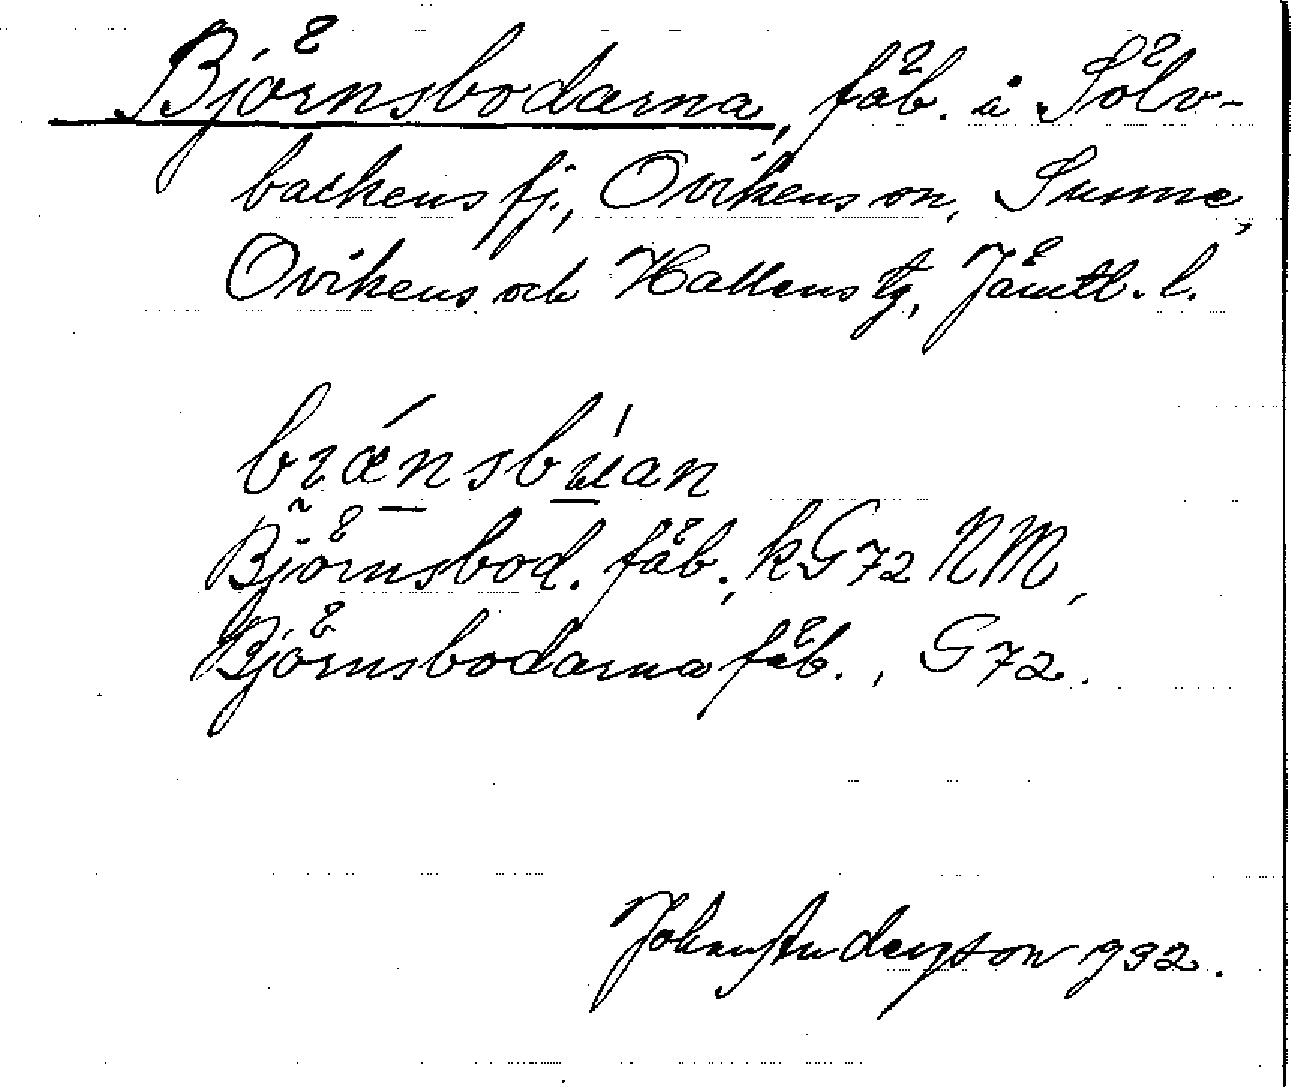 Björnsbodarna, fäb. å Sölv-
backens fj., Ovikens sn, Sunne,
Ovikens och Hallens tg, Jämtl. l.
brǽnsbúan
Björnsbod. fäb., kG72 NM,
Björnsbodarna fäb., G72.
Johan Anderson 1932.